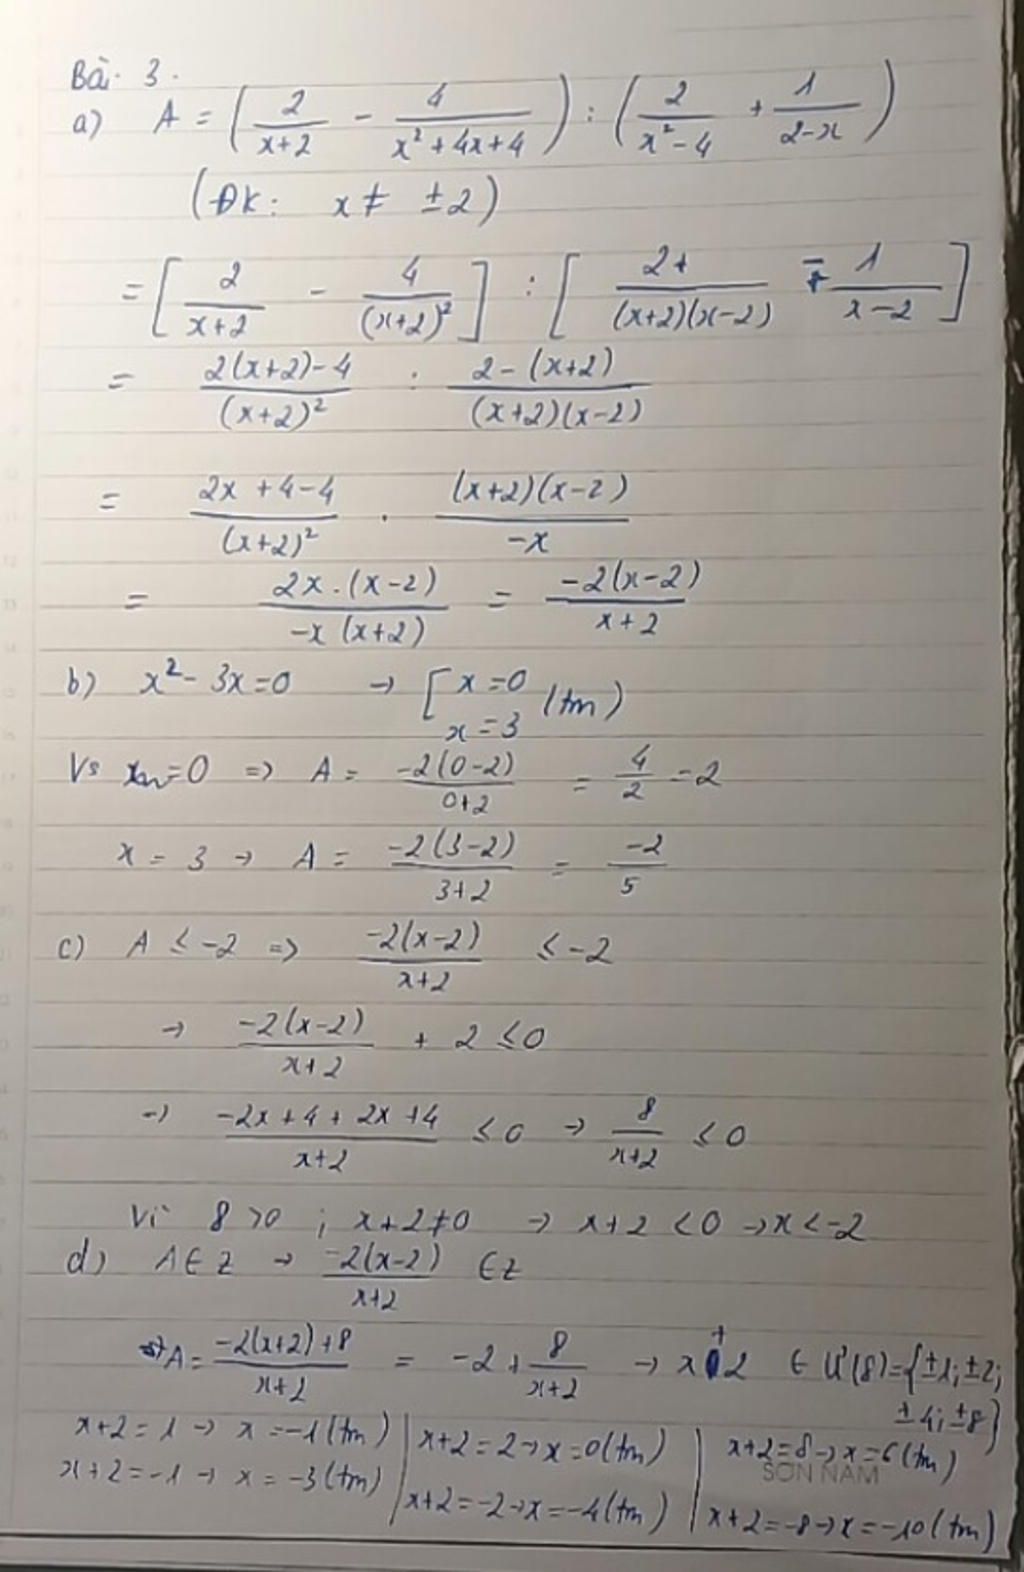 Bài 3.
a) A = ( 2/(x+2) - 4/(x² + 4x + 4) ) : ( 2/(x² - 4) + 1/(2-x) )
(ĐK: x ≠ ±2)
= [ 2/(x+2) - 4/(x+2)² ] : [ 2/((x+2)(x-2)) - 1/(x-2) ]
= (2(x+2)-4)/(x+2)² : (2-(x+2))/((x+2)(x-2))
= (2x+4-4)/(x+2)² . ((x+2)(x-2))/(-x)
= (2x.(x-2))/(-x(x+2)) = (-2(x-2))/(x+2)
b) x² - 3x = 0 → [ x = 0 (tm)
x = 3
Vs x = 0 => A = (-2(0-2))/(0+2) = 4/2 = 2
x = 3 → A = (-2(3-2))/(3+2) = -2/5
c) A ≤ -2 => (-2(x-2))/(x+2) ≤ -2
→ (-2(x-2))/(x+2) + 2 ≤ 0
→ (-2x+4+2x+4)/(x+2) ≤ 0 → 8/(x+2) ≤ 0
Vì 8 > 0 ; x+2 ≠ 0 → x+2 < 0 → x < -2
d) A ∈ Z → (-2(x-2))/(x+2) ∈ Z
A = (-2(x+2)+8)/(x+2) = -2 + 8/(x+2) → x+2 ∈ Ư(8) = {±1; ±2;
±4; ±8}
x+2 = 1 → x = -1 (tm) | x+2 = 2 → x = 0 (tm) | x+2 = 8 → x = 6 (tm)
SON NAM
x+2 = -1 → x = -3 (tm) | x+2 = -2 → x = -4 (tm) | x+2 = -8 → x = -10 (tm)